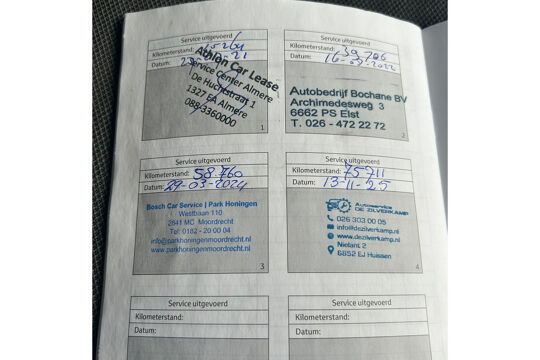 Service uitgevoerd
Kilometerstand:
Datum:
Athlon Car Lease
Service Center Almere
De Huchtstraat 1
1327 EA Almere
1
Service uitgevoerd
Kilometerstand: 39706
Datum: 16-09-2022
Autobedrijf Bochane BV
Archimedesweg 3
6662 PS Elst
T. 026 - 472 22 72
2
Service uitgevoerd
Kilometerstand: 58760
Datum: 29-03-2024
Bosch Car Service | Park Honingen
Westbaan 110
2841 MC Moordrecht
Tel: 0182 - 20 00 04
info@parkhoningenmoordrecht.nl
www.parkhoningenmoordrecht.nl
3
Service uitgevoerd
Kilometerstand: 75711
Datum: 13-11-25
Autoservice
DE ZILVERKAMP
026 303 00 05
info@dezilverkamp.nl
www.dezilverkamp.nl
Nielant 2
6852 EJ Huissen
4
Service uitgevoerd
Kilometerstand:
Datum:
Service uitgevoerd
Kilometerstand:
Datum: